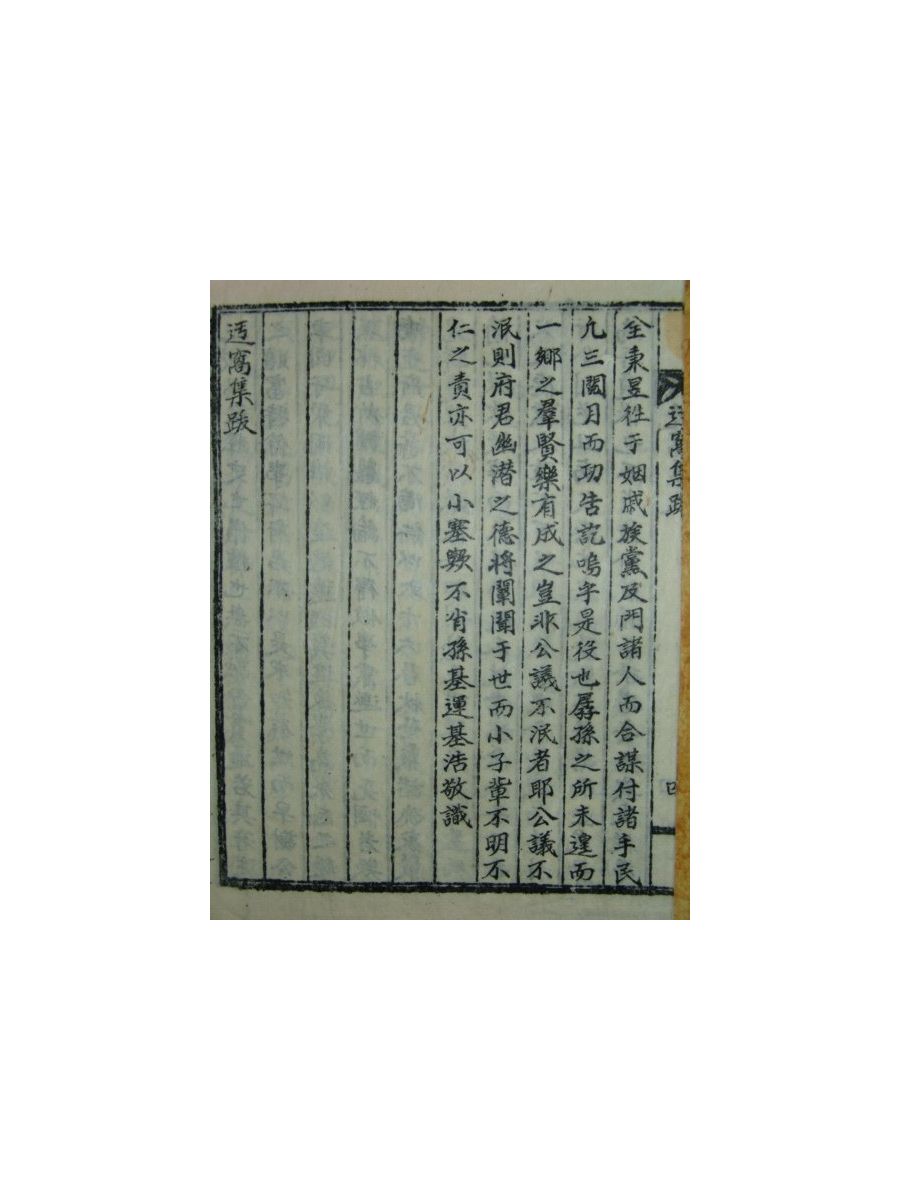 迃窩集跋 四
全秉昱徃于姻戚族黨及門諸人而合謀付諸手民
凢三閱月而功告訖嗚乎是役也孱孫之所未遑而
一鄕之羣賢樂有成之豈非公議不泯者耶公議不
泯則府君幽潜之德將闡聞于世而小子軰不明不
仁之責亦可以小塞歟不肖孫基運基浩敬識
迃窩集跋